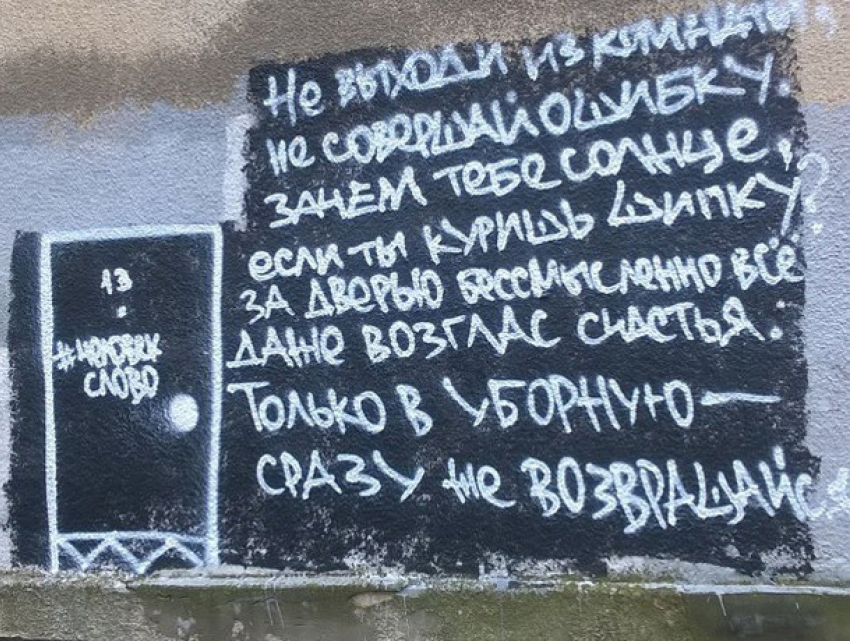 Не выходи из комнаты,
не совершай ошибку.
зачем тебе солнце,
если ты куришь шипку?
за дверью бессмысленно всё
даже возглас счастья.
Только в уборную—
сразу же возвращайся
13
#человек
слово